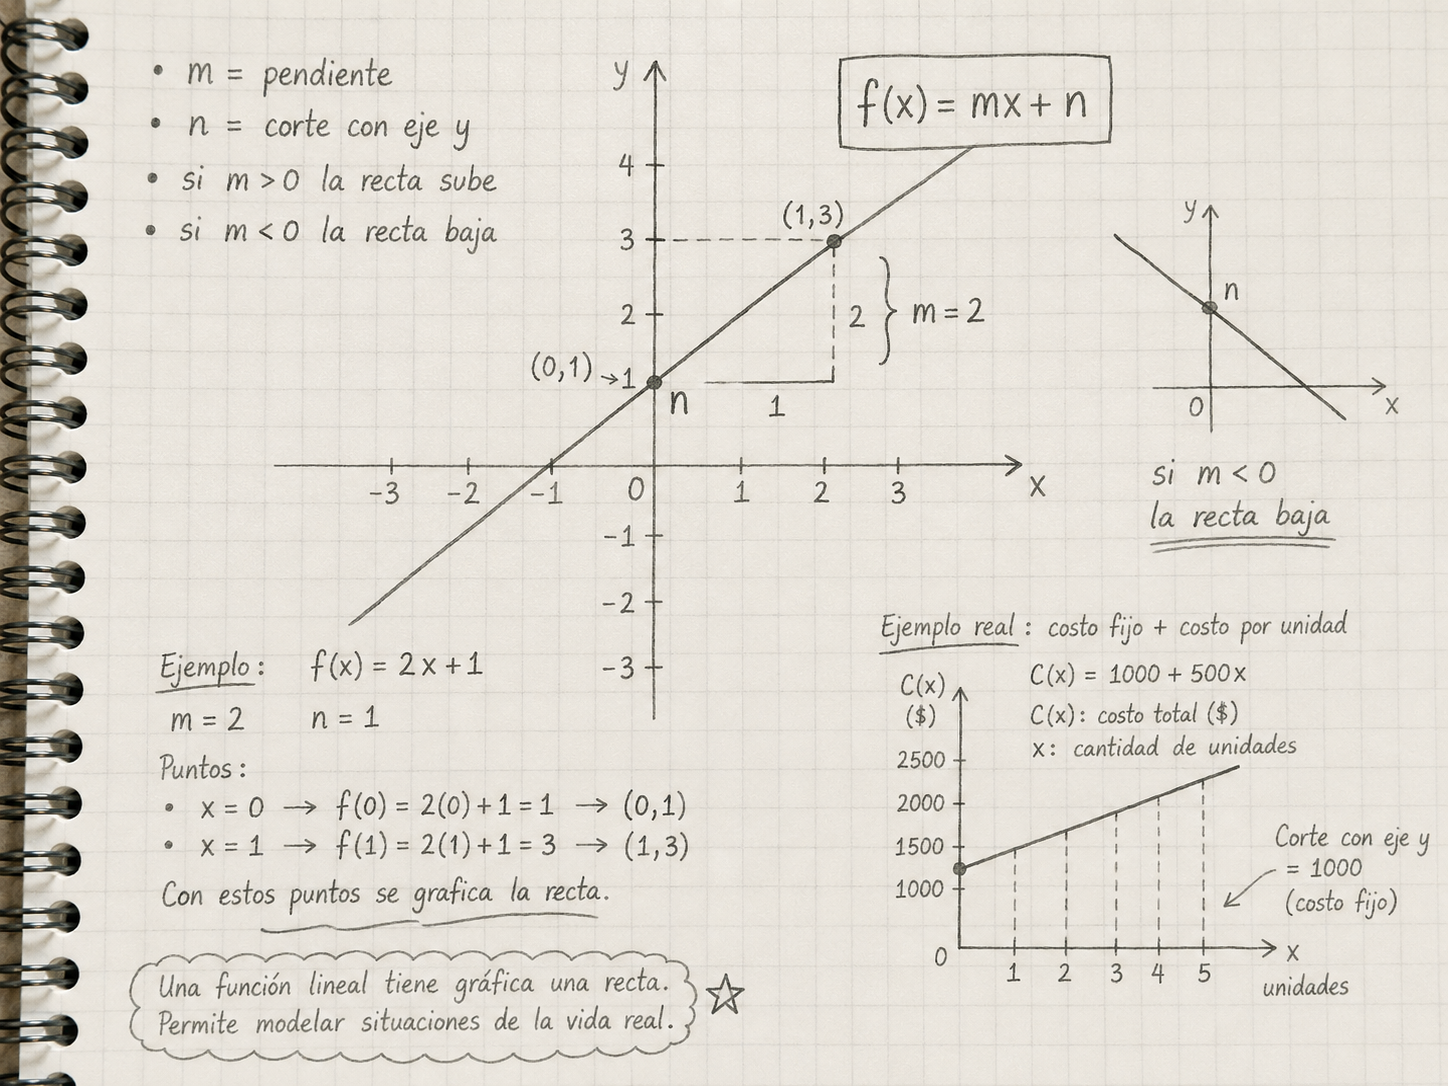 • m = pendiente
• n = corte con eje y
• si m > 0 la recta sube
• si m < 0 la recta baja
f(x) = mx + n
y
4
3
2
1
(1,3)
(0,1) →
n
2 } m = 2
1
-3 -2 -1 0 1 2 3 x
-1
-2
-3
y
n
0 x
si m < 0
la recta baja
Ejemplo: f(x) = 2x + 1
m = 2 n = 1
Puntos:
• x = 0 → f(0) = 2(0) + 1 = 1 → (0,1)
• x = 1 → f(1) = 2(1) + 1 = 3 → (1,3)
Con estos puntos se grafica la recta.
Una función lineal tiene gráfica una recta.
Permite modelar situaciones de la vida real.
Ejemplo real: costo fijo + costo por unidad
C(x) = 1000 + 500x
C(x): costo total ($)
x: cantidad de unidades
C(x)
($)
2500
2000
1500
1000
0
1 2 3 4 5
x
unidades
Corte con eje y
= 1000
(costo fijo)